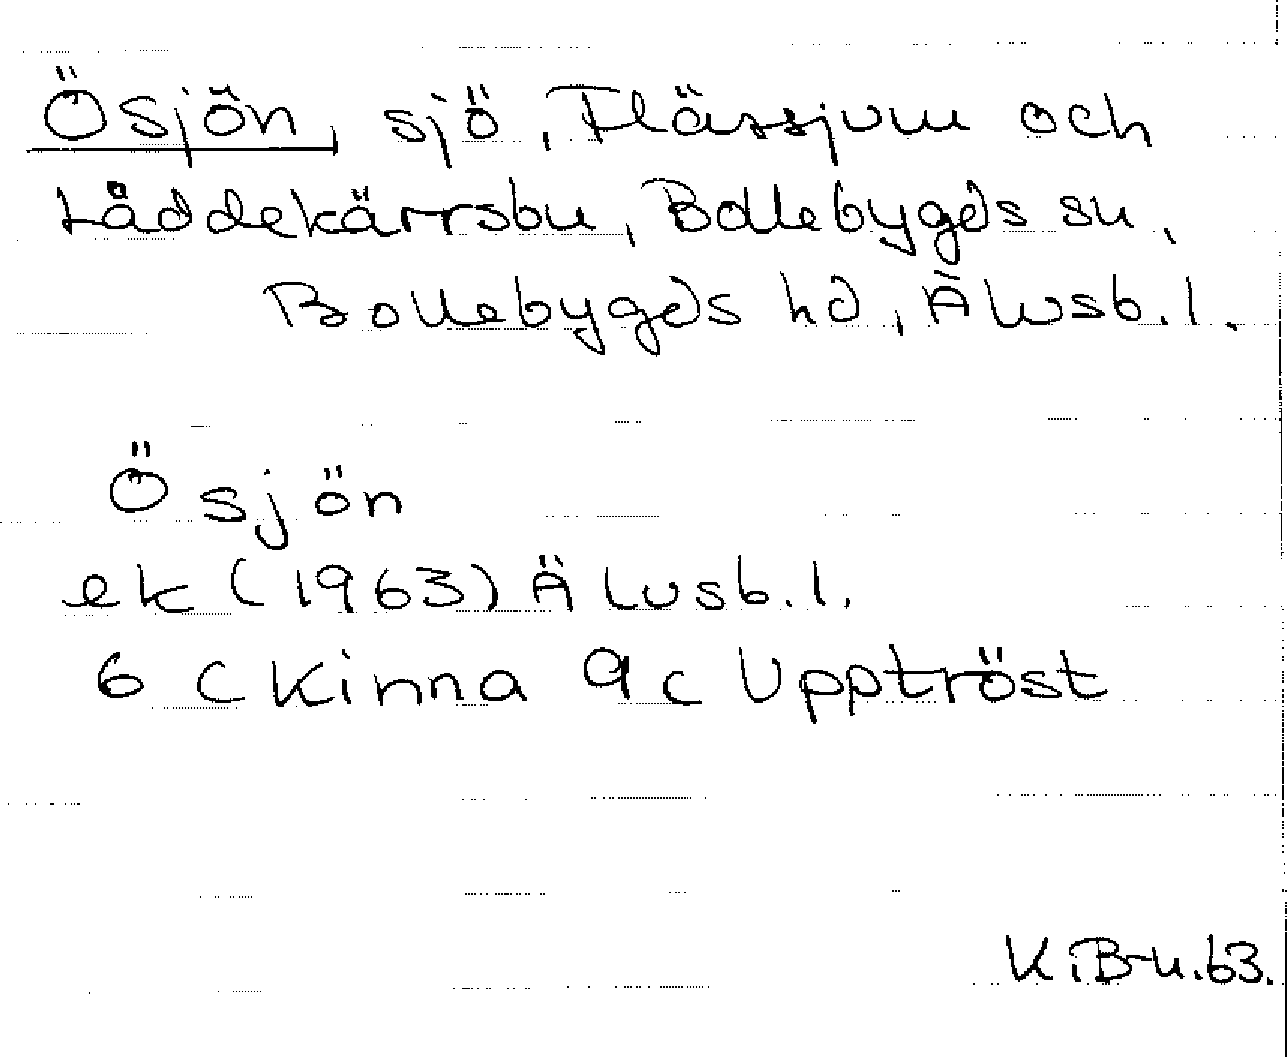 Ösjön, sjö, Flässjum och
Låddekärrsbu, Bollebygds sn,
Bollebygds hd, Älvsb.l.
Ösjön
ek (1963) Älvsb.l.
6 C Kinna 9 c Upptröst
K iB-n.63.